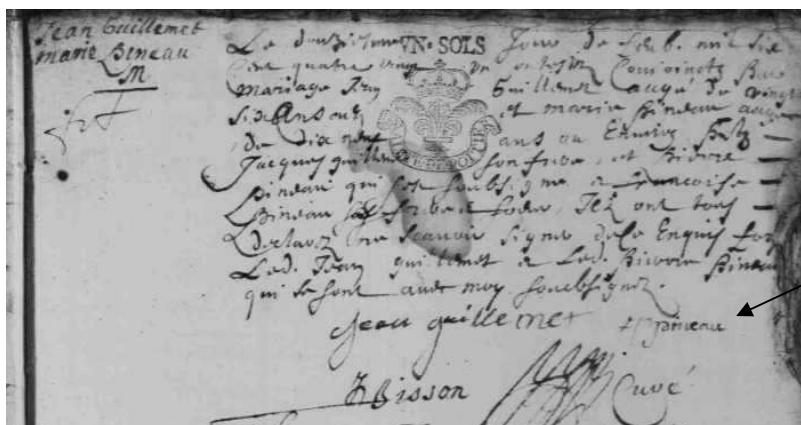 Jean Guillemet
marie Bineau
M
Le douziesme VN·SOLS Jour de feb. mil six
Cent quatre vingt un ont estez Conioincts Par
mariage Jean Guillemet aagé de vingt
six Ans ou et marie Bineau aagée
de dix neuf ans ou Environ
Jacques guillemet son frere, et Pierre
Bineau qui soubsigné & francoise
Bineau ont tous
declarez ne scavoir signer de ce Enquis fors
Led. Jean guillemet & Led. Pierre Bineau
qui se sont avec moy soubsignez.
Jean guillemet P bineau
Bisson Curé